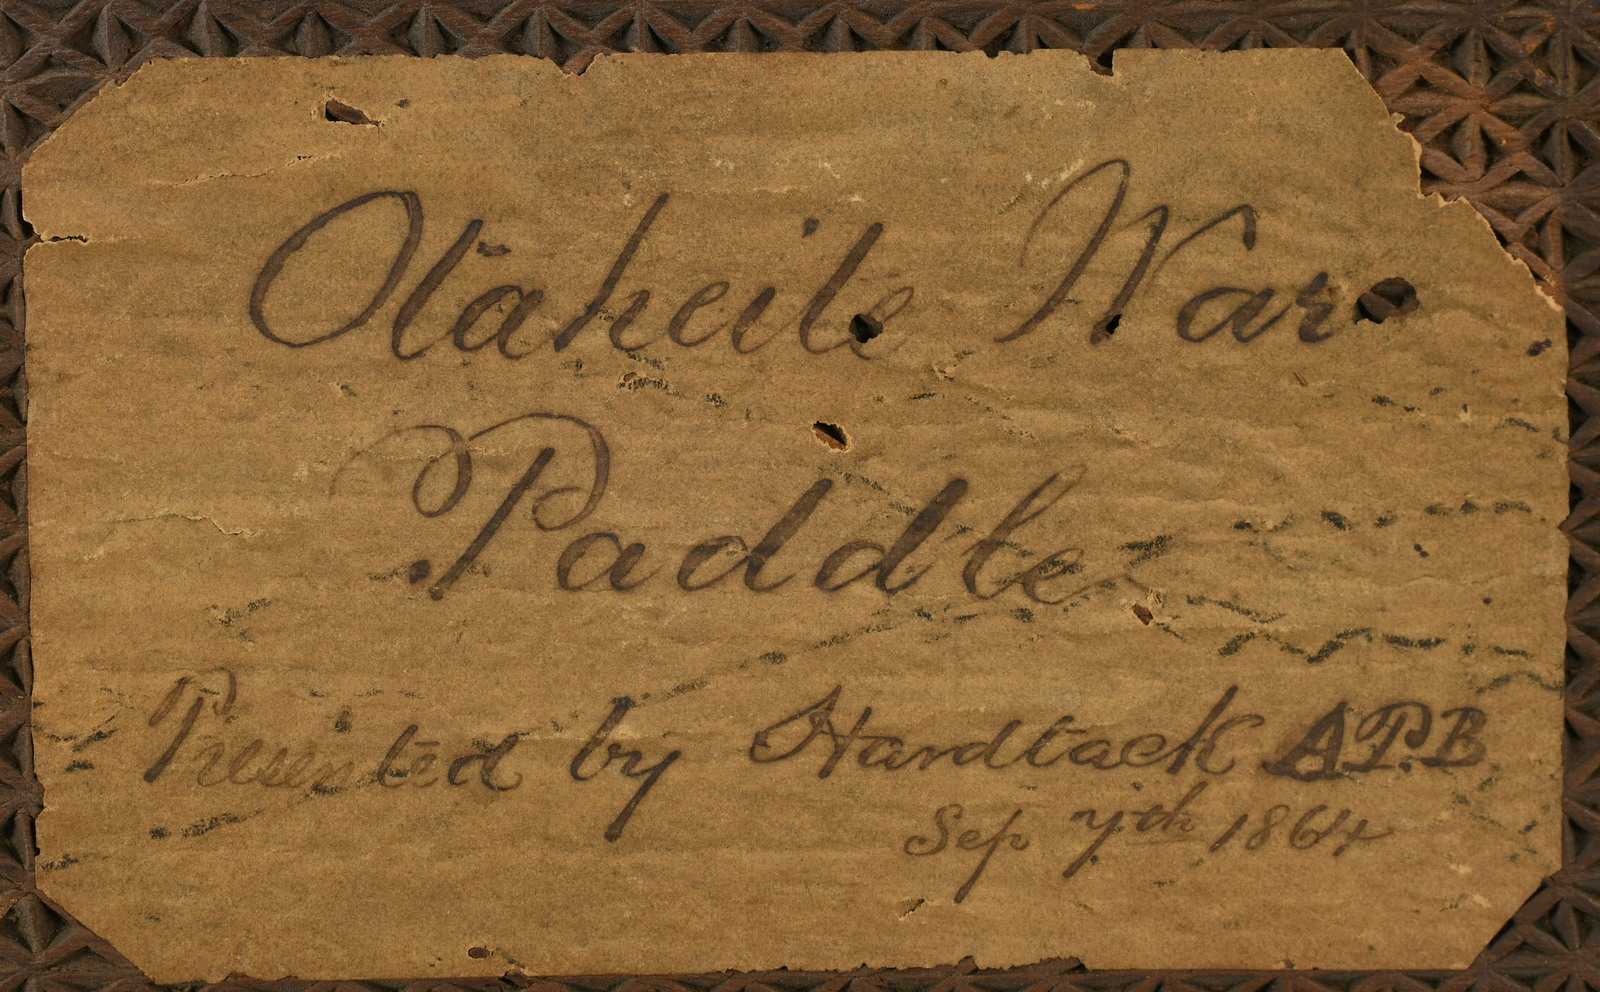 Otaheite War
Paddle
Presented by Hardtack A.P.B
Sep 7th 1864